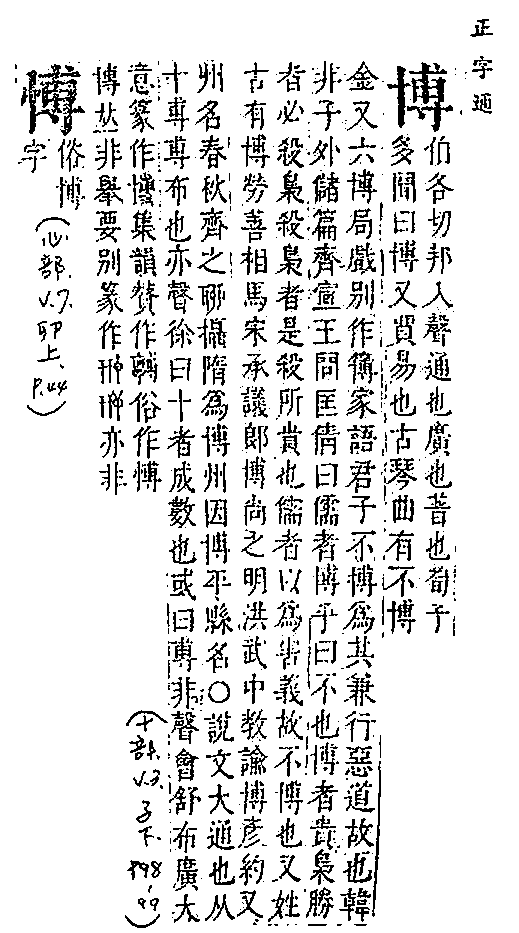 正字通
博
伯各切邦入聲通也廣也普也荀子
多聞曰博又貿易也古琴曲有不博
金又六博局戲別作簙家語君子不博為其兼行惡道故也韓
非子外儲篇齊宣王問匡倩曰儒者博乎曰不也博者貴梟勝
者必殺梟殺梟者是殺所貴也儒者以為害義故不博也又姓
古有博勞善相馬宋承議郎博尚之明洪武中教諭博彥約又
州名春秋齊之聊攝隋為博州因博平縣名○說文大通也从
十尃尃布也亦聲徐曰十者成數也或曰尃非聲會舒布廣大
意篆作博集韻贅作
俗作愽
博𠀤非舉要別篆作
亦非
(十部.V.3.子下.P98-99)
愽
俗博
字
(心部.V.7.卯上.P.44)